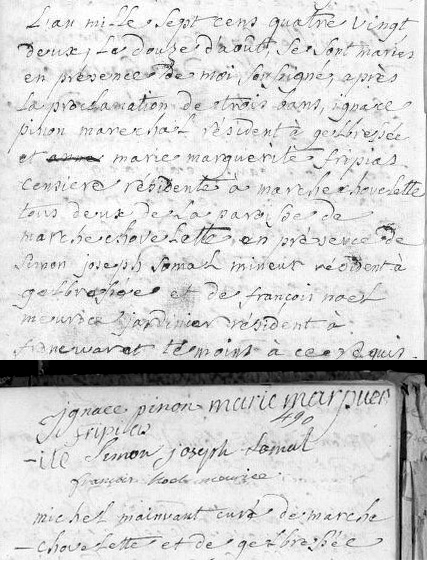 L'an mille sept cens quatre vingt
deux, La douze d'août, se sont mariés
en présence de moi, soussigné, après
La proclamation de trois bans, ignace
pinon marechal résident à gelbressée
et marie marguerite fripias
censiere résidente à marche chovelette
tous deux de La paroisse de
marche chovelette, en présence de
Simon joseph Somal mineur résident à
gelbressée et de françois noel
meurice jardinier résident à
témoins à ce requis
ignace pinon marie marguer
fripias
-ite Simon joseph Lamal
françois Noel meurice
michel mainvant curé de marche
-chovelette et de gelbressée